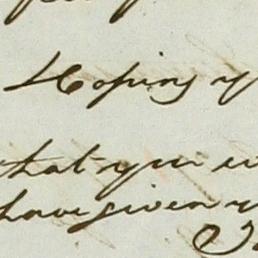 Hoping y
that you
have given y